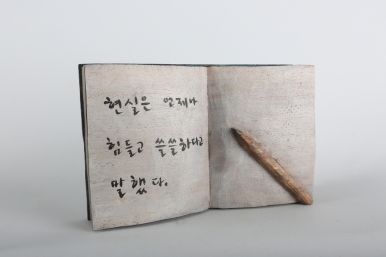 현실은 언제나
힘들고 쓸쓸하다고
말했다.